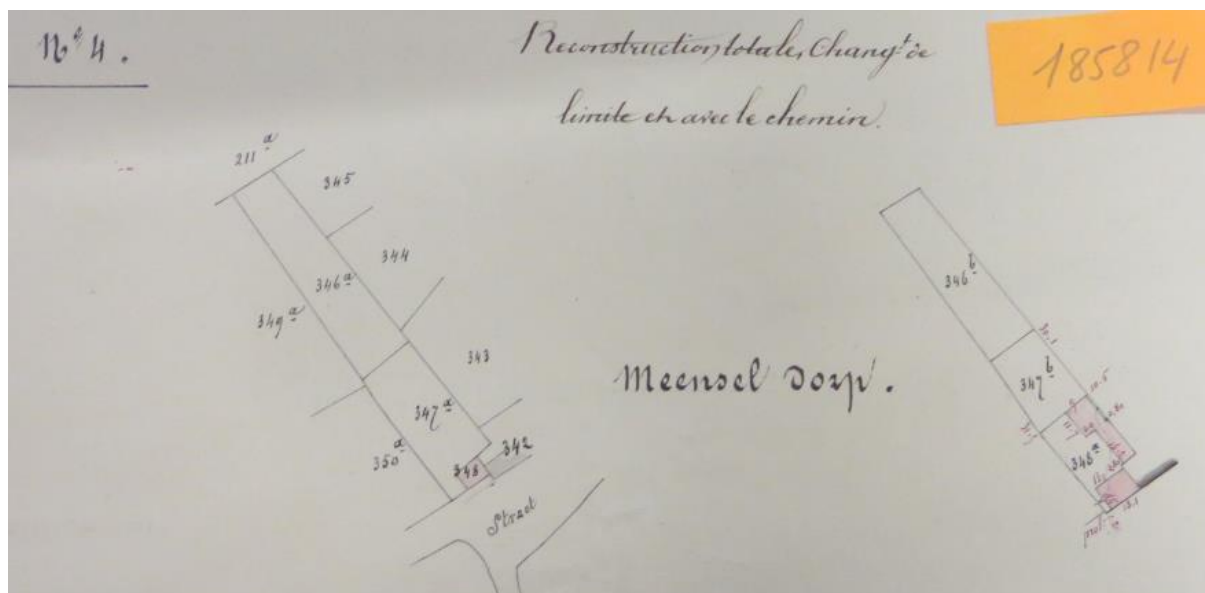 Nº 4.
Reconstruction totale, Changt de
limite et avec le chemin.
185814
211a
345
346a
344
349a
343
347a
350a
348
342
Straet
Meensel Dorp.
346b
347b
348a